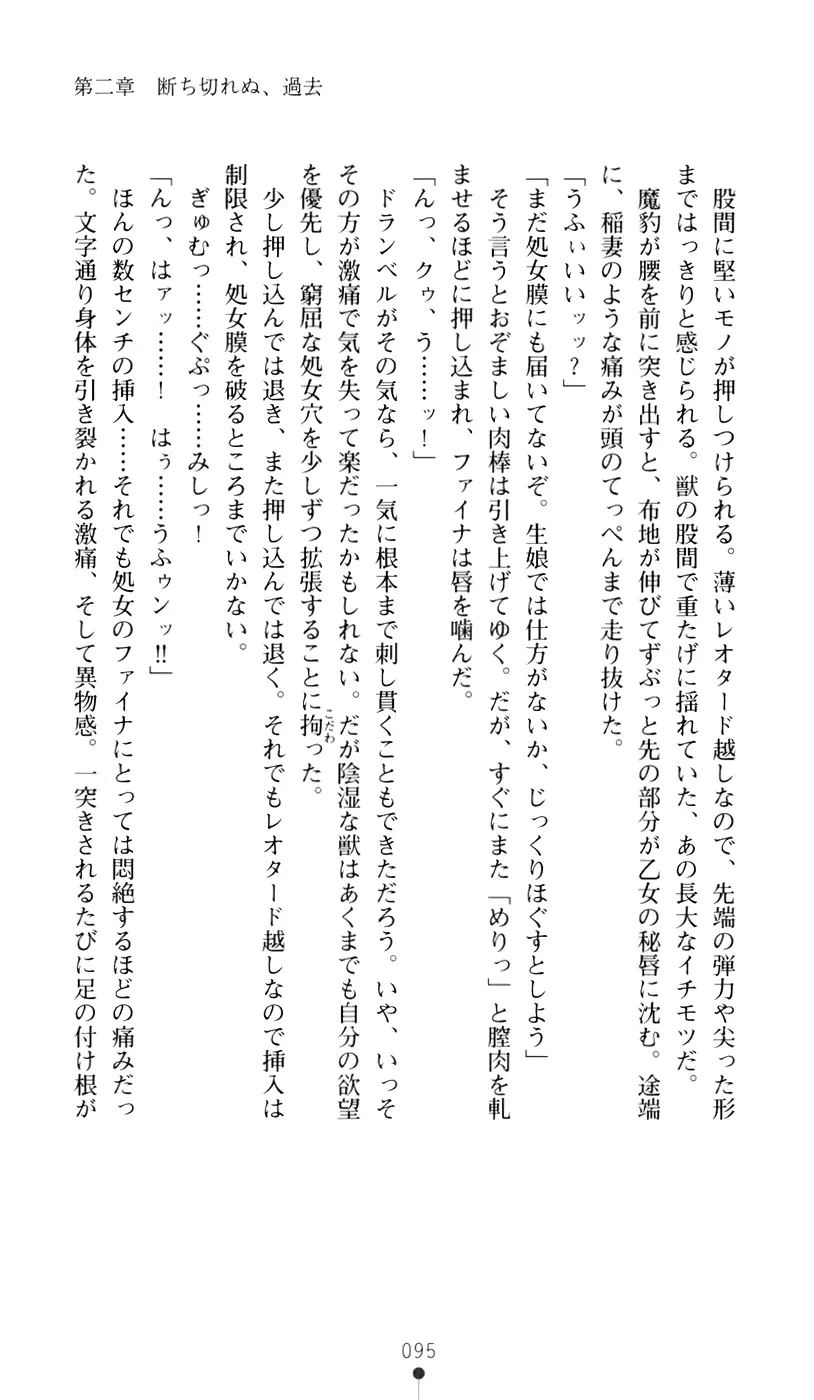 第二章　断ち切れぬ、過去
股間に堅いモノが押しつけられる。薄いレオタード越しなので、先端の弾力や尖った形
まではっきりと感じられる。獣の股間で重たげに揺れていた、あの長大なイチモツだ。
魔豹が腰を前に突き出すと、布地が伸びてずぶっと先の部分が乙女の秘唇に沈む。途端
に、稲妻のような痛みが頭のてっぺんまで走り抜けた。
「うふぃいいッッ？」
「まだ処女膜にも届いてないぞ。生娘では仕方がないか、じっくりほぐすとしよう」
そう言うとおぞましい肉棒は引き上げてゆく。だが、すぐにまた「めりっ」と膣肉を軋
ませるほどに押し込まれ、ファイナは唇を噛んだ。
「んっ、クゥ、う……ッ！」
ドランベルがその気なら、一気に根本まで刺し貫くこともできただろう。いや、いっそ
その方が激痛で気を失って楽だったかもしれない。だが陰湿な獣はあくまでも自分の欲望
を優先し、窮屈な処女穴を少しずつ拡張することに拘こだわった。
少し押し込んでは退き、また押し込んでは退く。それでもレオタード越しなので挿入は
制限され、処女膜を破るところまでいかない。
ぎゅむっ……ぐぷっ……みしっ！
「んっ、はァッ……！　はぅ……うふゥンッ‼」
ほんの数センチの挿入……それでも処女のファイナにとっては悶絶するほどの痛みだっ
た。文字通り身体を引き裂かれる激痛、そして異物感。一突きされるたびに足の付け根が
095